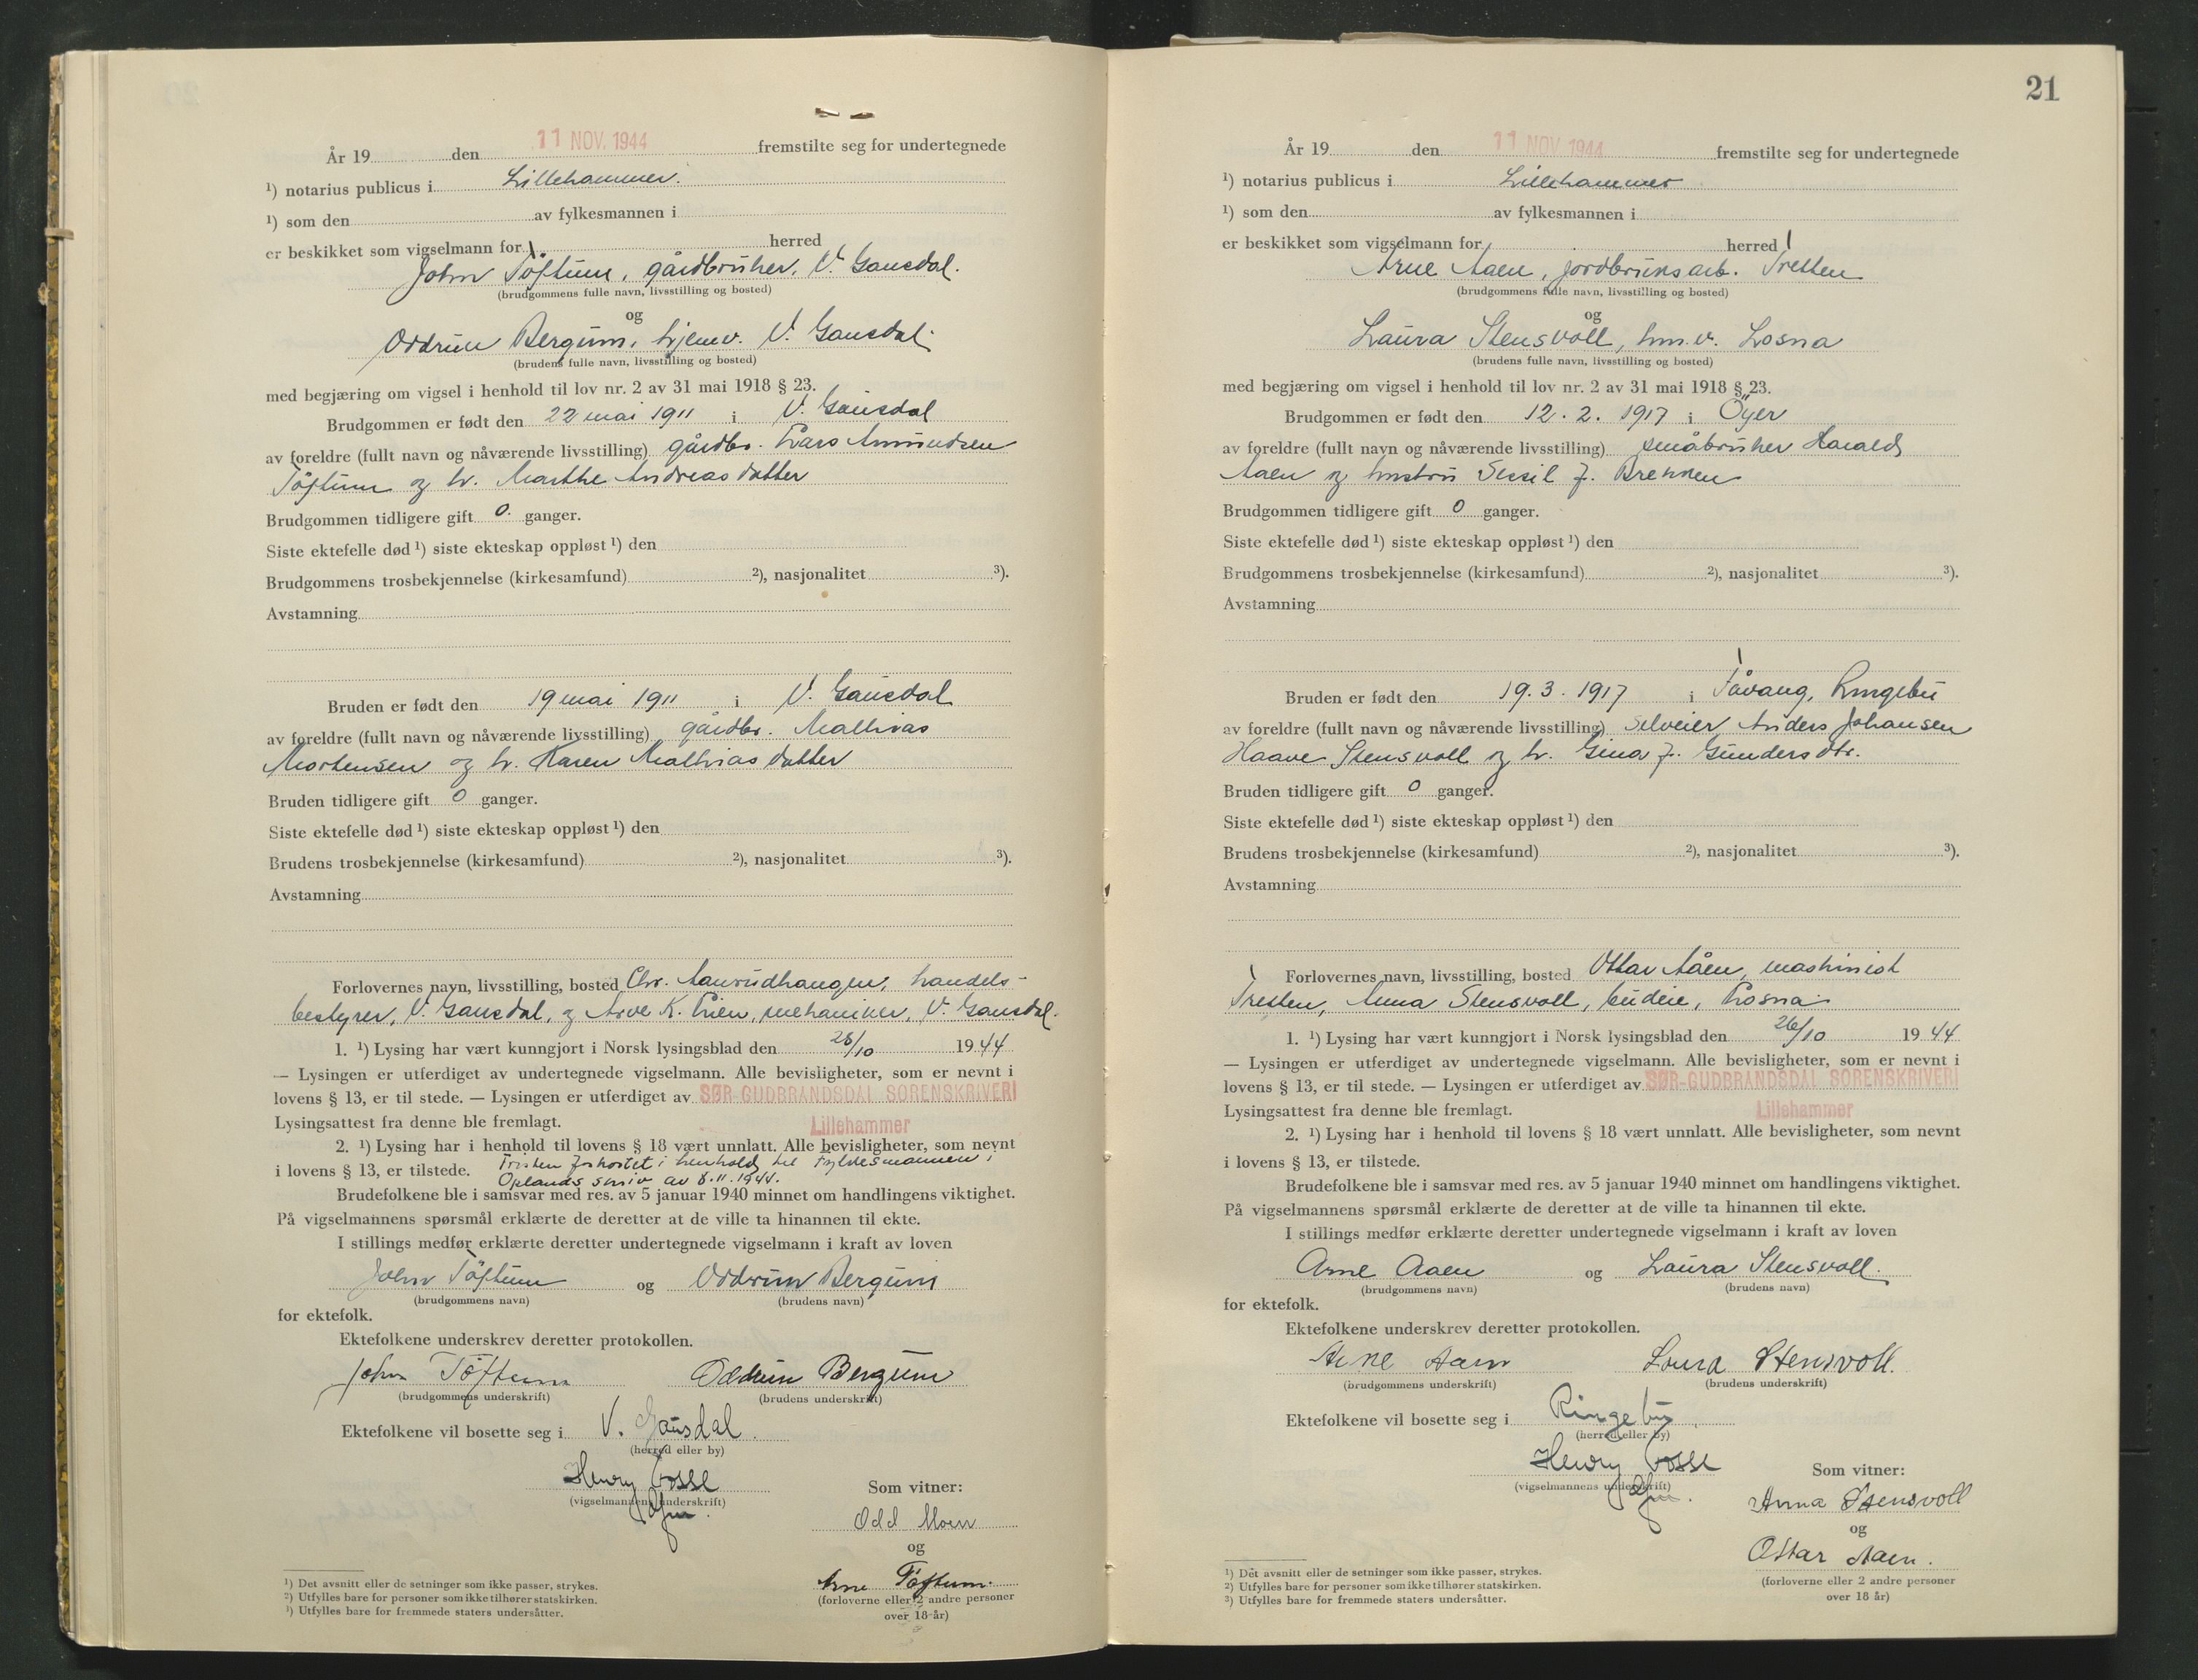 År 19 den 11 NOV. 1944 fremstilte seg for undertegnede
¹) notarius publicus i Lillehammer.
¹) som den av fylkesmannen i
er beskikket som vigselmann for herred
John Töftum, gårdbruker, V. Gausdal.
(brudgommens fulle navn, livsstilling og bosted)
og
Oddrun Bergum, hjemv. V. Gausdal.
(brudens fulle navn, livsstilling og bosted)
med begjæring om vigsel i henhold til lov nr. 2 av 31 mai 1918 § 23.
Brudgommen er født den 22 mai 1911 i V. Gausdal
av foreldre (fullt navn og nåværende livsstilling) gårdbr. Lars Amundsen
Töftum og h. Marthe Andreasdatter
Brudgommen tidligere gift 0 ganger.
Siste ektefelle død ¹) siste ekteskap oppløst ¹) den
Brudgommens trosbekjennelse (kirkesamfund) ²), nasjonalitet ³).
Avstamning
Bruden er født den 19 mai 1911 i V. Gausdal
av foreldre (fullt navn og nåværende livsstilling) gårdbr. Mathias
Mortensen og h. Karen Mathiasdatter
Bruden tidligere gift 0 ganger.
Siste ektefelle død ¹) siste ekteskap oppløst ¹) den
Brudens trosbekjennelse (kirkesamfund) ²), nasjonalitet ³).
Avstamning
Forlovernes navn, livsstilling, bosted Chr. Aanrudhaugen, handels-
bestyrer, V. Gausdal, og Arve K. Lien, mekaniker, V. Gausdal.
1. ¹) Lysing har vært kunngjort i Norsk lysingsblad den 28/10 1944
— Lysingen er utferdiget av undertegnede vigselmann. Alle bevisligheter, som er nevnt i
lovens § 13, er til stede. — Lysingen er utferdiget av SØR-GUDBRANDSDAL SORENSKRIVERI
Lysingsattest fra denne ble fremlagt. Lillehammer
2. ¹) Lysing har i henhold til lovens § 18 vært unnlatt. Alle bevisligheter, som nevnt
i lovens § 13, er tilstede. Fristen forkortet i henhold til Fylkesmannen i
Oplands skriv av 8.11.1944.
Brudefolkene ble i samsvar med res. av 5 januar 1940 minnet om handlingens viktighet.
På vigselmannens spørsmål erklærte de deretter at de ville ta hinannen til ekte.
I stillings medfør erklærte deretter undertegnede vigselmann i kraft av loven
John Töftum og Oddrun Bergum
(brudgommens navn) (brudens navn)
for ektefolk.
Ektefolkene underskrev deretter protokollen.
John Töftum Oddrun Bergum
(brudgommens underskrift) (brudens underskrift)
Ektefolkene vil bosette seg i V. Gausdal.
(herred eller by)
Henry Fosse
(vigselmannens underskrift)
Som vitner:
Odd Moen
og
Arne Töftum.
(forloverne eller 2 andre personer
over 18 år)
¹) Det avsnitt eller de setninger som ikke passer, strykes.
²) Utfylles bare for personer som ikke tilhører statskirken.
³) Utfylles bare for fremmede staters undersåtter.
21
År 19 den 11 NOV 1944 fremstilte seg for undertegnede
¹) notarius publicus i Lillehammer
¹) som den av fylkesmannen i
er beskikket som vigselmann for herred
Arne Aaen, jordbruksarb. Tretten
(brudgommens fulle navn, livsstilling og bosted)
og
Laura Stensvoll, hus.v. Losna
(brudens fulle navn, livsstilling og bosted)
med begjæring om vigsel i henhold til lov nr. 2 av 31 mai 1918 § 23.
Brudgommen er født den 12. 2. 1917 i Öyer
av foreldre (fullt navn og nåværende livsstilling) småbruker Harald
Aaen og hustru Sessil f. Brekken
Brudgommen tidligere gift 0 ganger.
Siste ektefelle død ¹) siste ekteskap oppløst ¹) den
Brudgommens trosbekjennelse (kirkesamfund) ²), nasjonalitet ³).
Avstamning
Bruden er født den 19. 3. 1917 i Fåvang, Ringebu
av foreldre (fullt navn og nåværende livsstilling) selveier Anders Johansen
Haave Stensvoll og h. Gina f. Gundersdtr.
Bruden tidligere gift 0 ganger.
Siste ektefelle død ¹) siste ekteskap oppløst ¹) den
Brudens trosbekjennelse (kirkesamfund) ²), nasjonalitet ³).
Avstamning
Forlovernes navn, livsstilling, bosted Ottar Aaen, maskinist
Tretten, Anna Stensvoll, budeie, Losna
1. ¹) Lysing har vært kunngjort i Norsk lysingsblad den 26/10 1944
— Lysingen er utferdiget av undertegnede vigselmann. Alle bevisligheter, som er nevnt i
lovens § 13, er til stede. — Lysingen er utferdiget av SØR-GUDBRANDSDAL SORENSKRIVERI
Lysingsattest fra denne ble fremlagt. Lillehammer
2. ¹) Lysing har i henhold til lovens § 18 vært unnlatt. Alle bevisligheter, som nevnt
i lovens § 13, er tilstede.
Brudefolkene ble i samsvar med res. av 5 januar 1940 minnet om handlingens viktighet.
På vigselmannens spørsmål erklærte de deretter at de ville ta hinannen til ekte.
I stillings medfør erklærte deretter undertegnede vigselmann i kraft av loven
Arne Aaen og Laura Stensvoll.
(brudgommens navn) (brudens navn)
for ektefolk.
Ektefolkene underskrev deretter protokollen.
Arne Aaen Laura Stensvoll.
(brudgommens underskrift) (brudens underskrift)
Ektefolkene vil bosette seg i Ringebu
(herred eller by)
Henry Fosse
(vigselmannens underskrift)
Som vitner:
Anna Stensvoll
og
Ottar Aaen.
(forloverne eller 2 andre personer
over 18 år)
¹) Det avsnitt eller de setninger som ikke passer, strykes.
²) Utfylles bare for personer som ikke tilhører statskirken.
³) Utfylles bare for fremmede staters undersåtter.